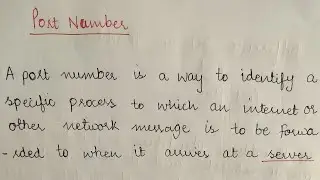 Port Number
A port number is a way to identify a
specific process to which an internet or
other network message is to be forwa
-rded to when it arrives at a server